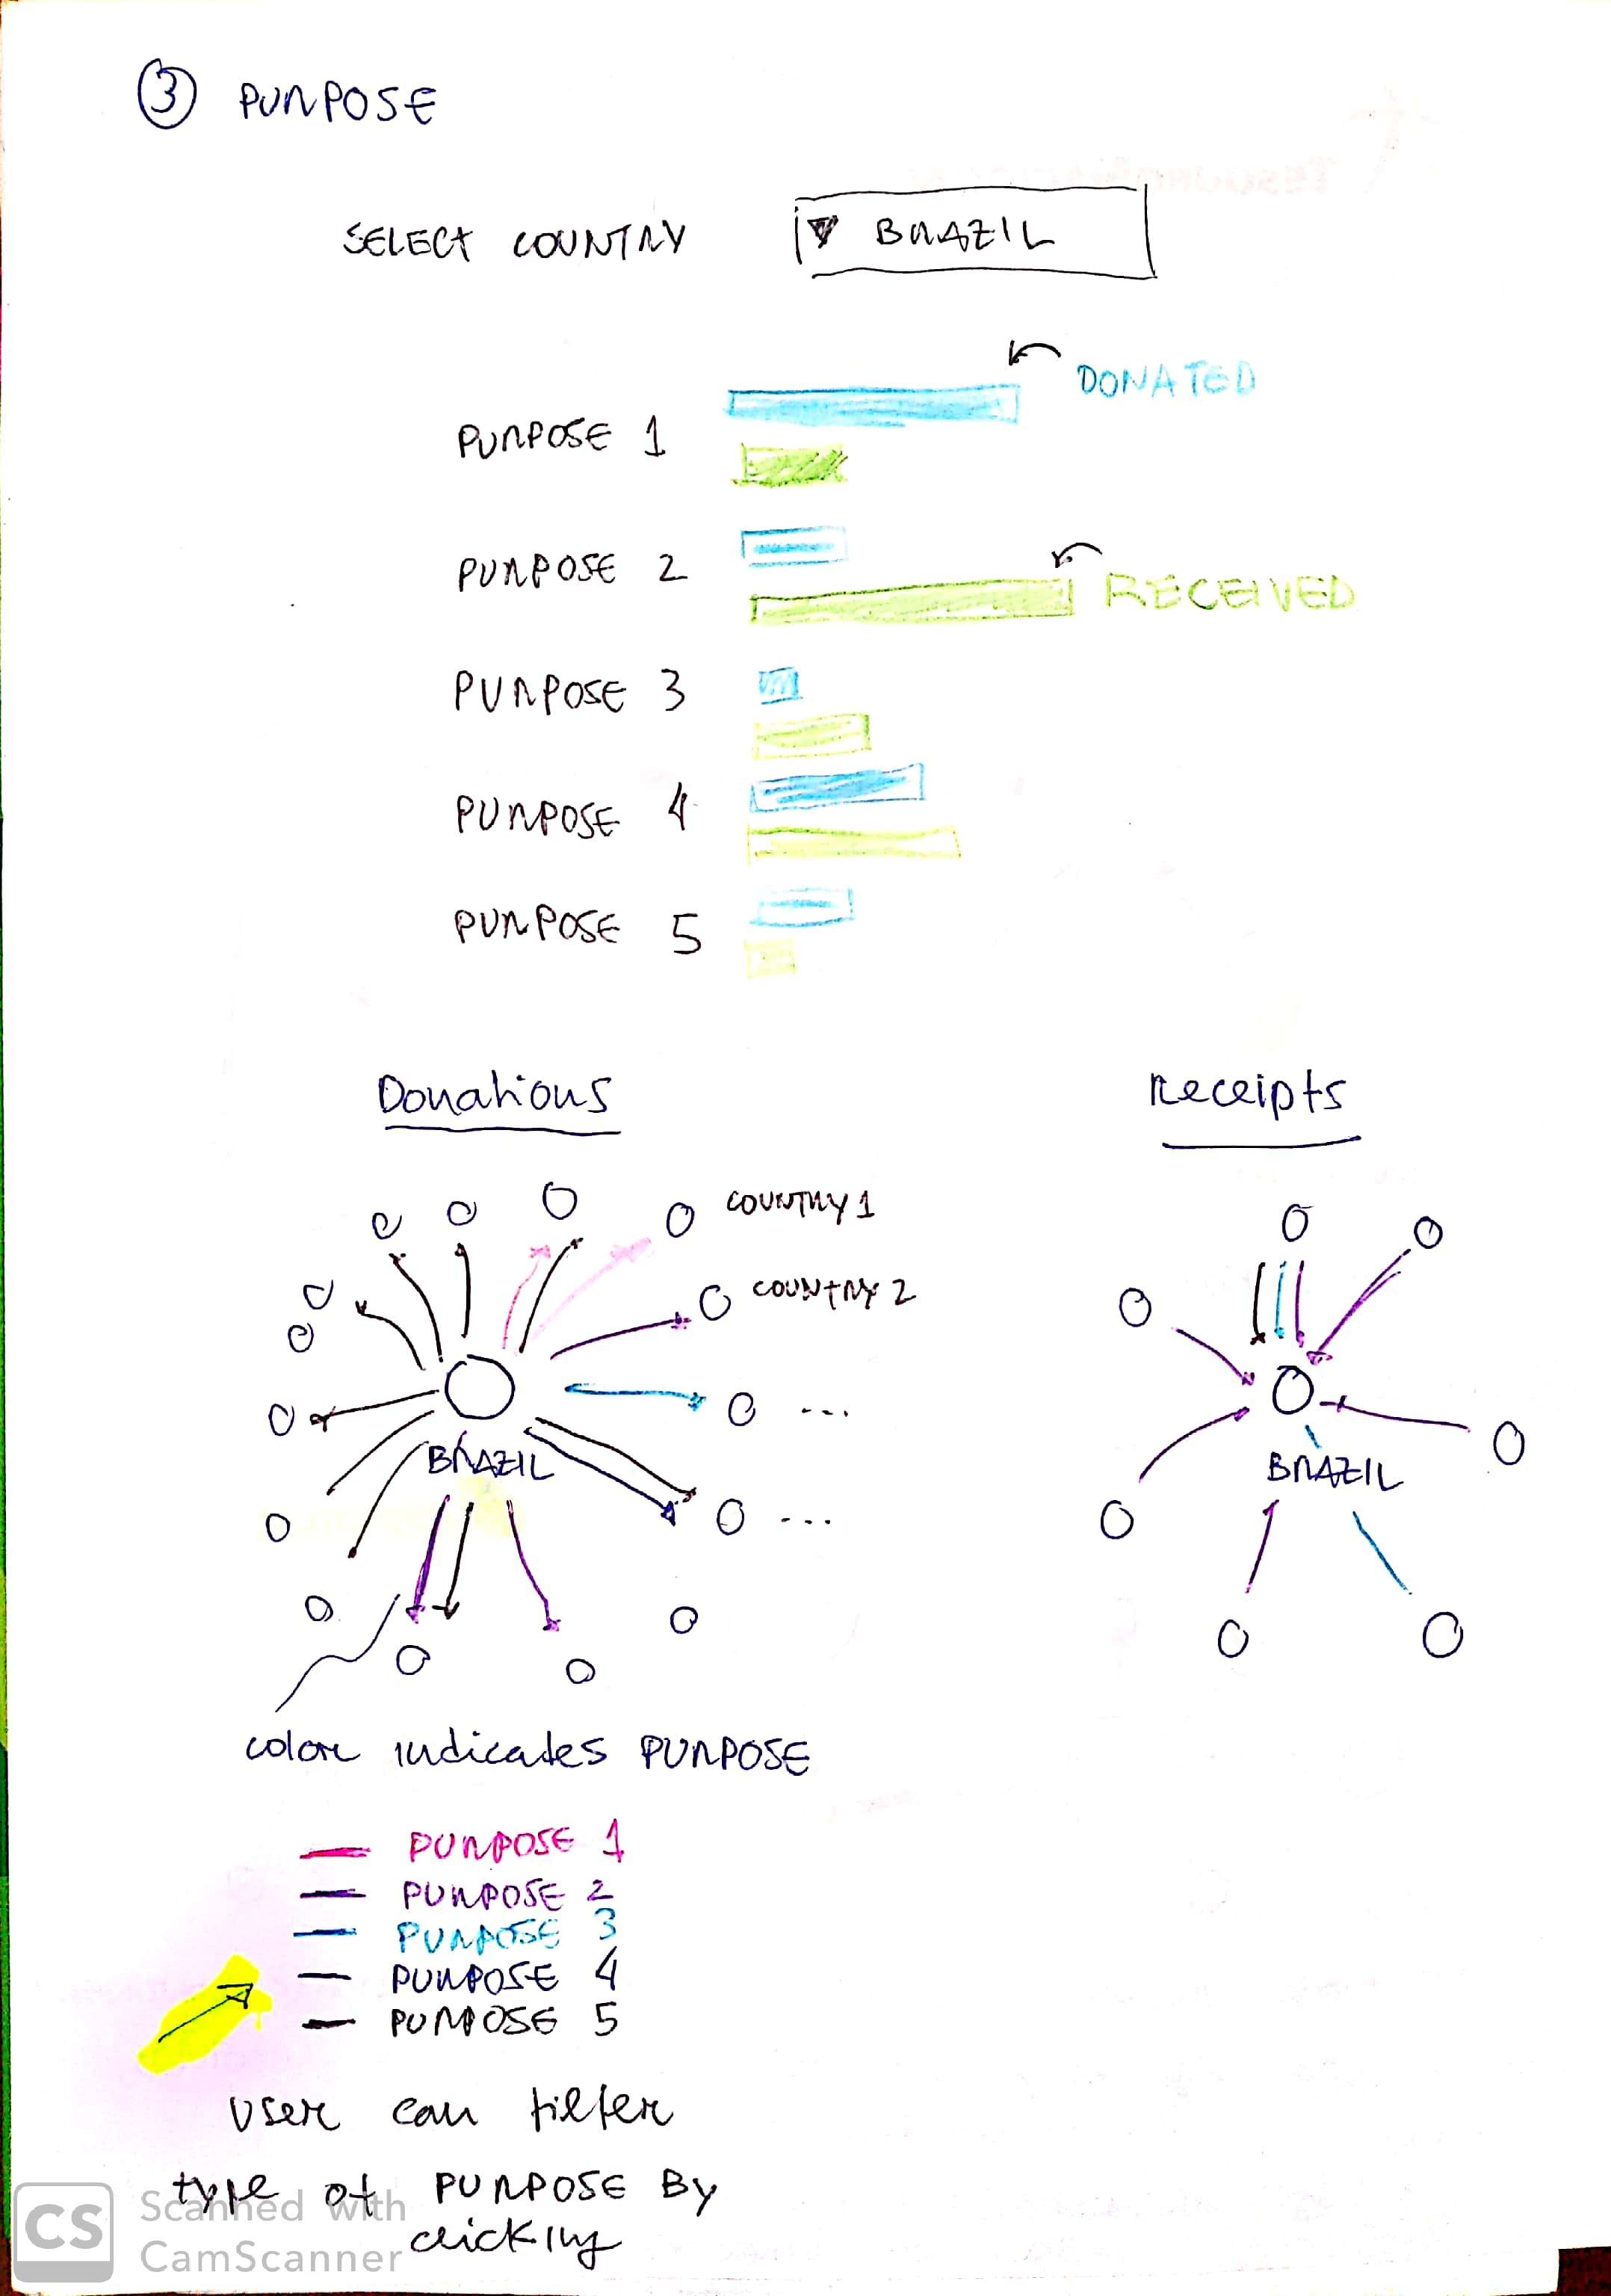 3 PURPOSE
SELECT COUNTRY
BRAZIL
DONATED
PURPOSE 1
PURPOSE 2
RECEIVED
PURPOSE 3
PURPOSE 4
PURPOSE 5
Donations
Receipts
COUNTRY 1
COUNTRY 2
...
BRAZIL
BRAZIL
...
color indicates PURPOSE
PURPOSE 1
PURPOSE 2
PURPOSE 3
PURPOSE 4
PURPOSE 5
User can filter
type of PURPOSE By
clicking
CS Scanned with
CamScanner